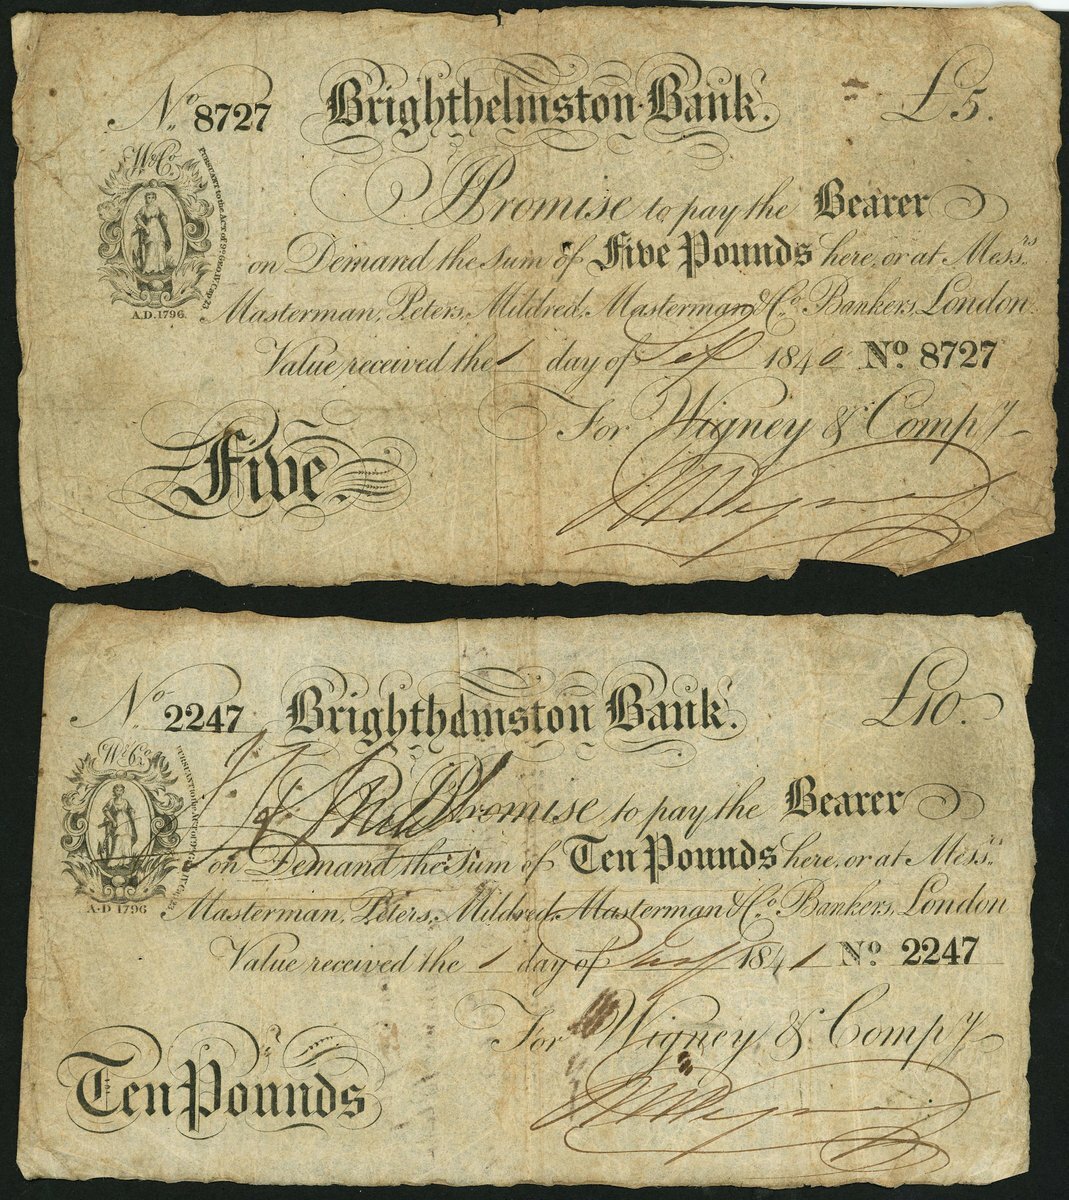 No. 8727 Brighthelmston Bank. £5.
W & Co.
PURSUANT to the Act of 9th GEO. IV Cap 23
I Promise to pay the Bearer
on Demand the Sum of Five Pounds here, or at Messrs.
A.D. 1796.
Masterman, Peters, Mildred, Masterman & Co. Bankers, London.
Value received the 1 day of Sep 1840 No. 8727
For Wigney & Compy
Five.
No. 2247 Brighthelmston Bank. £10.
W & Co.
I Promise to pay the Bearer
on Demand the Sum of Ten Pounds here, or at Messrs.
A.D 1796
Masterman, Peters, Mildred, Masterman & Co. Bankers, London
Value received the 1 day of 1841 No. 2247
For Wigney & Compy
Ten Pounds